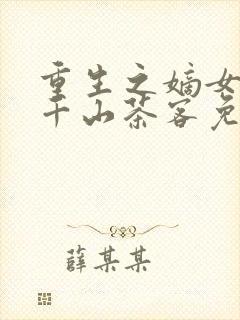 重生之嫡女
千山茶客免
薛某某